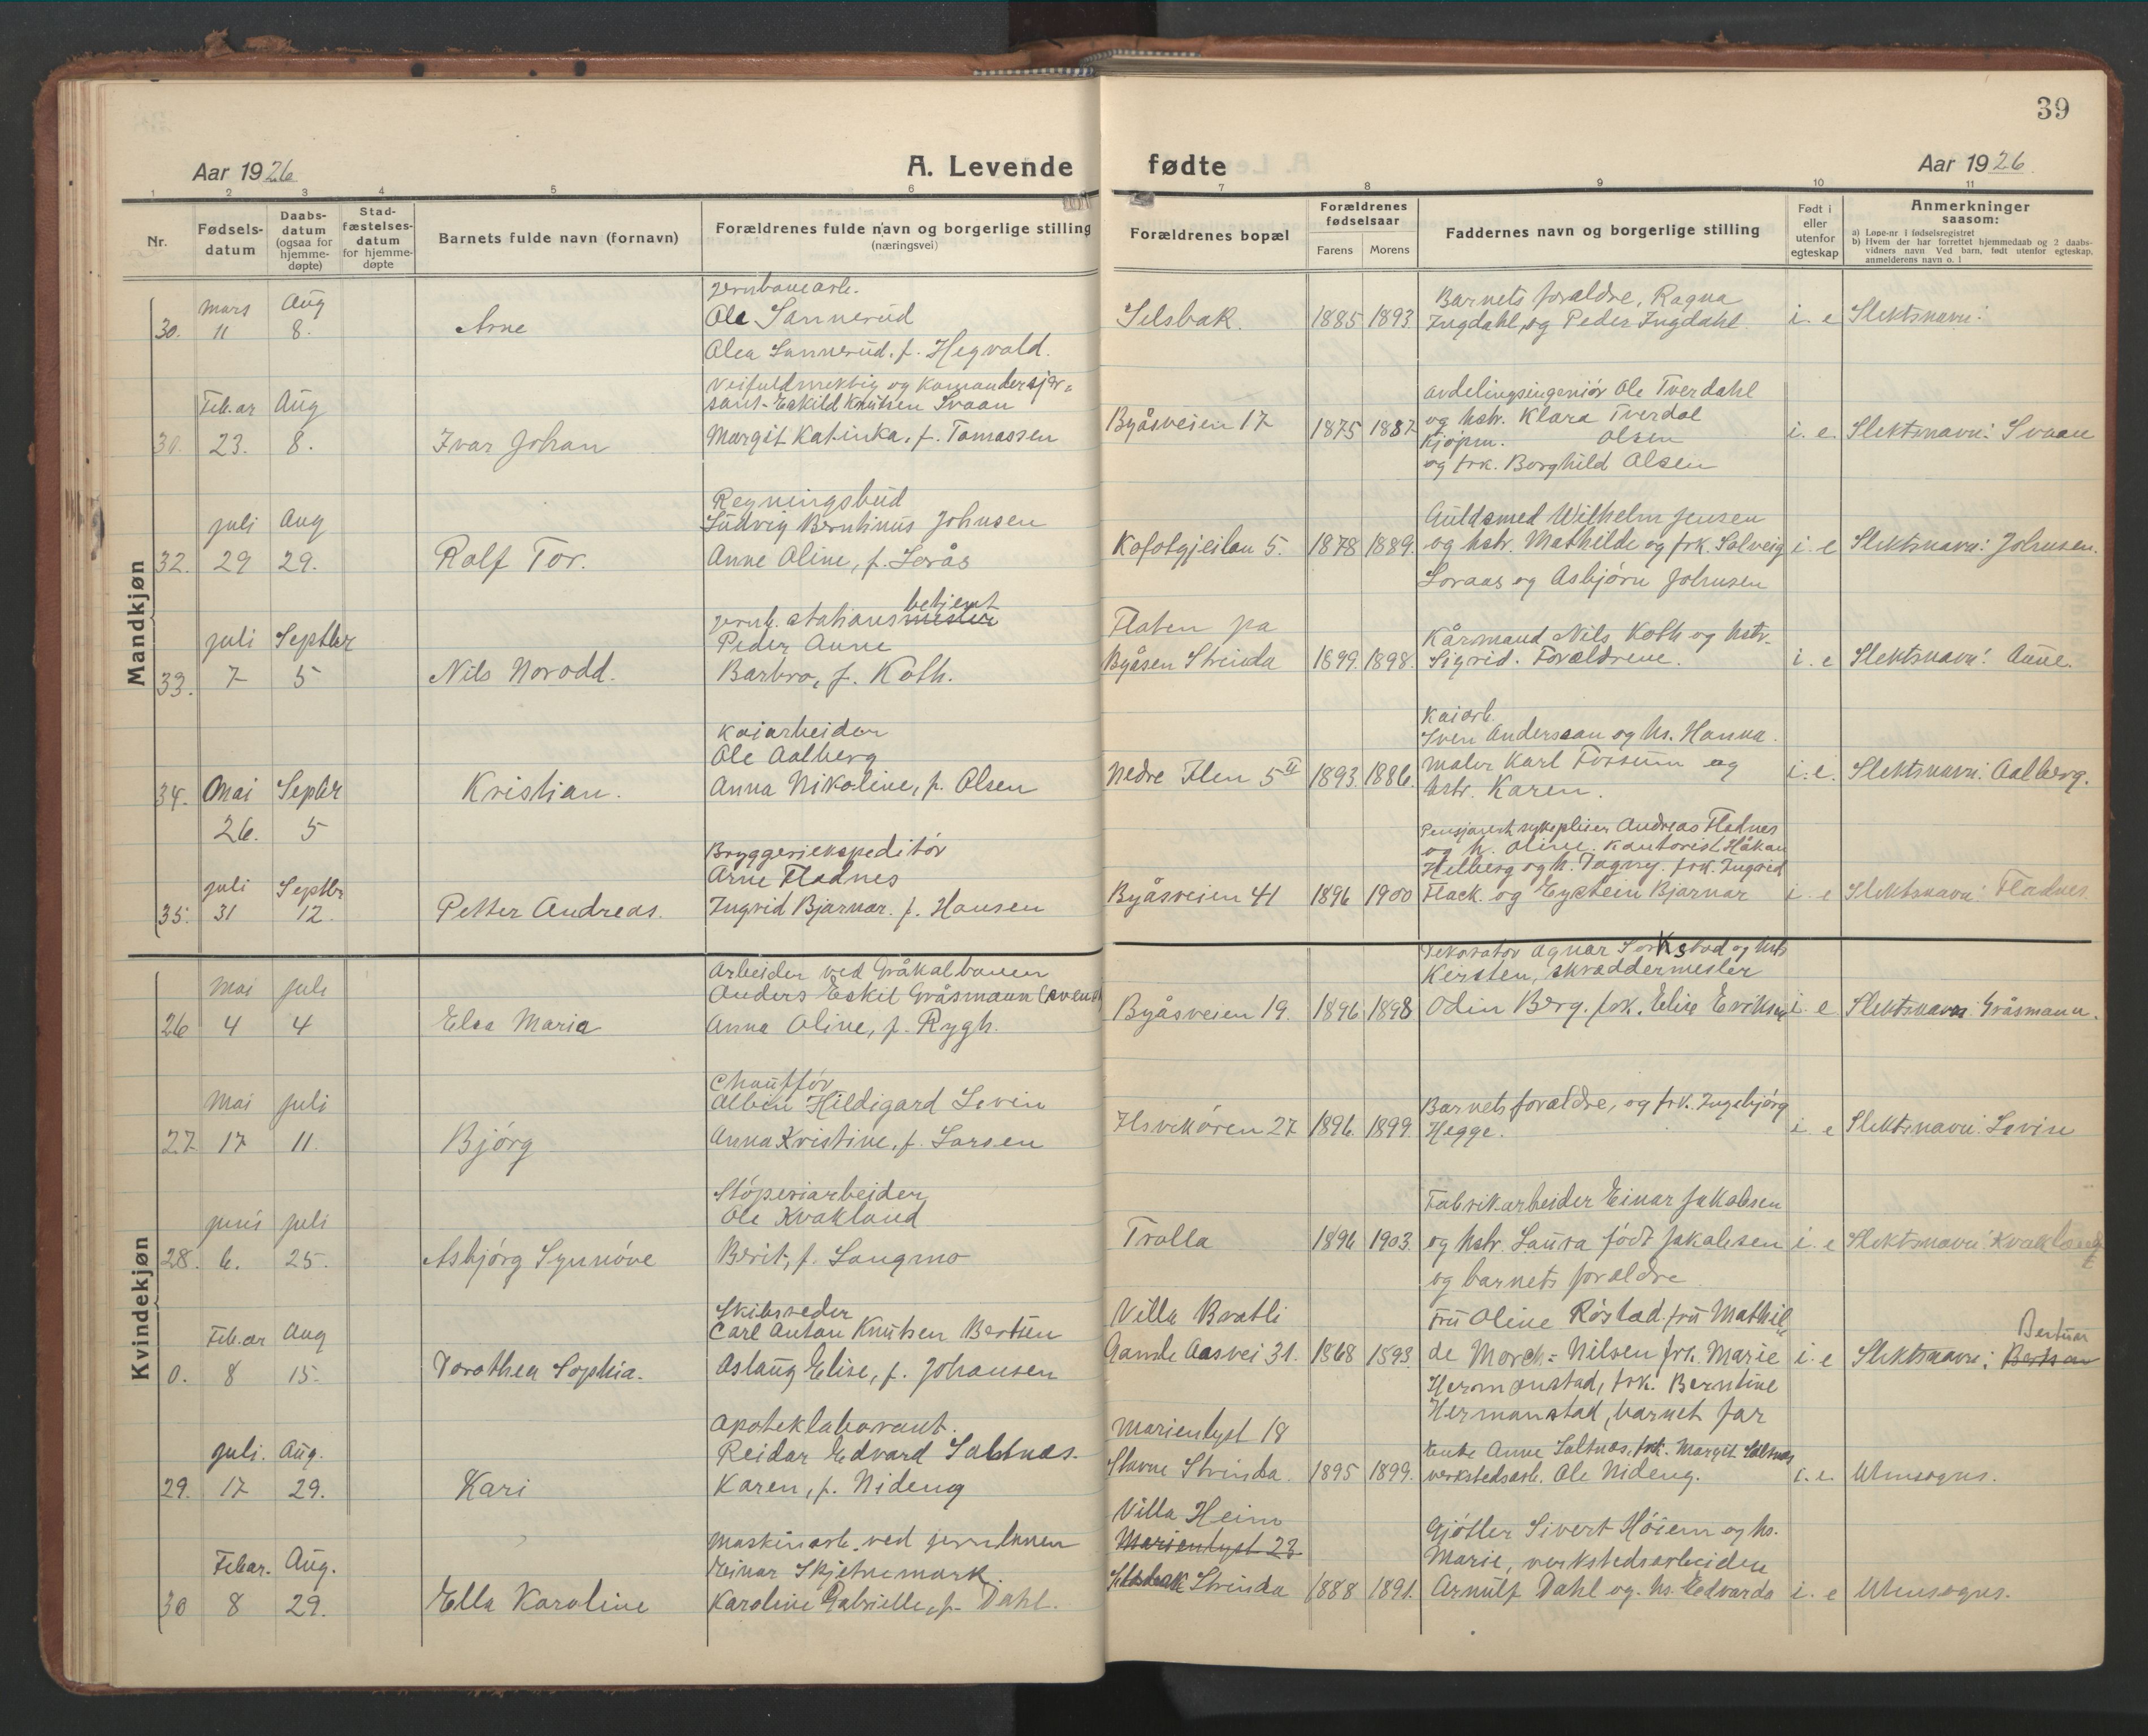 39
Aar 1926 A. Levende fødte Aar 1926
1 2 3 4 5 6 7 8 9 10 11
Nr. Fødsels-datum Daabs-datum (ogsaa for hjemme-døpte) Stad-fæstelses-datum for hjemme-døpte Barnets fulde navn (fornavn) Forældrenes fulde navn og borgerlige stilling (næringsvei) Forældrenes bopæl Forældrenes fødselsaar Farens Morens Faddernes navn og borgerlige stilling Født i eller utenfor egteskap Anmerkninger saasom:
a) Løpe-nr. i fødselsregistret
b) Hvem der har forrettet hjemmedaab og 2 daabs-vidners navn Ved barn, født utenfor egteskap, anmelderens navn o. l
Mandkjøn
jernbanearb.
mars Aug Ole Sannerud Barnets forældre, Ragna
30. 11 8. Arne Selsbak. 1885 1893 Ingdahl, og Peder Ingdahl i. e Slektsnavn:
Olea Sannerud. f. Hegvald.
Veifuldmektig og Komandersjer= avdelingsingeniör Ole Tverdahl
Feb.ar Aug sant- Eskild Knutsen Svaan og hstr. Klara Tverdal
23. 8. Ivar Johan Margit Katinka, f. Tomassen Byåsveien 17 1875 1887 Kjøpm. Olsen i. e. Slektsnavn: Svaan
og frk. Borghild Olsen
Regningsbud
juli Aug Ludvig Berntinus Johnsen Guldsmed Wilhelm Jensen
32. 29 29. Rolf Tor. Anne Oline, f. Sorås 5. 1878 1889. og hstr. Mathilde og frk. Solveig i. e Slektsnavn: Johnsen.
Soraas og Asbjörn Johnsen
betjent
jernb. stationsmester Flaten pa
juli Septbr Peder Aune Kårmand Nils Koth og hstr.
33. 7 5 Nils Norodd. Barbro, f. Koth. Byåsen Strinda 1899. 1898. Sigrid. Forældrene. i. e Slektsnavn: Aune.
Kaiarb.
Kaiarbeider Sven Anderssan og hs. Hanna.
Ole Aalberg maler Karl Forsum og
34. Mai Septbr Kristian. Anna Nikoline, f. Olsen Nedre Ilen 5 II 1893. 1886. hstr. Karen. i. e. Slektsnavn: Aalberg.
26. 5
Pensjonert sykepleier Andreas Fladnes
Bryggeriekspeditör og h. Oline. Kontorist Håkon
juli Septbr Arne Fladnes Helberg og h. Dagny. frk. Ingrid
35. 31 12. Petter Andreas. Ingrid Bjarnar. f. Hansen Byåsveien 41 1896 1900 Flack. og Eystein Bjarnar i. e Slektsnavn: Fladnes.
Kvindekjøn
Arbeider ved Gråkalbanen Dekoratør Agnar Sorkstad og hstr
mai juli Anders Eskil Gråsmann Kirsten, skræddermester
26 4 4 Elsa Maria Anna Oline, f. Rygh. Byåsveien 19. 1896 1898 Odin Berg. frk. Elise Eriksen i. e Slektsnavn Gråsmann.
Chauffør
mai juli Albin Hildigard Levin Barnets forældre, og frk. Ingebjörg
27 17 11. Bjórg Anna Kristine, f. Larsen Ilsvikören 27 1896. 1899. Hegge. i. e Slektsnavn: Levin
Stóperiarbeider Fabrikarbeider Einar Jakobsen
juni juli Ole Kvakland
28. 6. 25. Asbjórg Synnóve Berit, f. Langmo Trolla 1896 1903. og hstr. Laura födt Jakobsen i. e Slektsnavn: Kvakland
og barnets forældre
Skibsreder Villa Bratli Fru Oline Róstad. fru Mathil
Feb.ar Aug Carl Anton Knutsen Bertün Bertun
0. 8 15. Dorothea Sophia. Aslaug Elise, f. Johansen Gamle Aasvei 31. 1868 1893. de Morch= Nilsen frk. Marie i. e Slektsnavn:
Hermanstad, frk. Berntine
Apoteklaborant. Marienlyst 18 Hermanstad, barnet far
juli. Aug. Reidar Edvard Saltnæs. Enke Anne Saltnæs, frk. Margit Saltnæs
29. 17 29. Kari Karen, f. Nideng Stavne Strinda. 1895 1899. verkstedsarb. Ole Nideng. i. e. Utensogns.
Villa Heim
Maskinarb. ved jernbanen Marienlyst 23 Gjótler Sivert Hóiem og hs.
Febar. Aug. Einar Skjetnemark. Marie, verkstedsarbeider
30 8 29. Ella Karoline Karoline Gabrielle, f. Dahl. Strinda 1888 1891. Arnulf Dahl og hs. Edvarda i. e Utensogns.